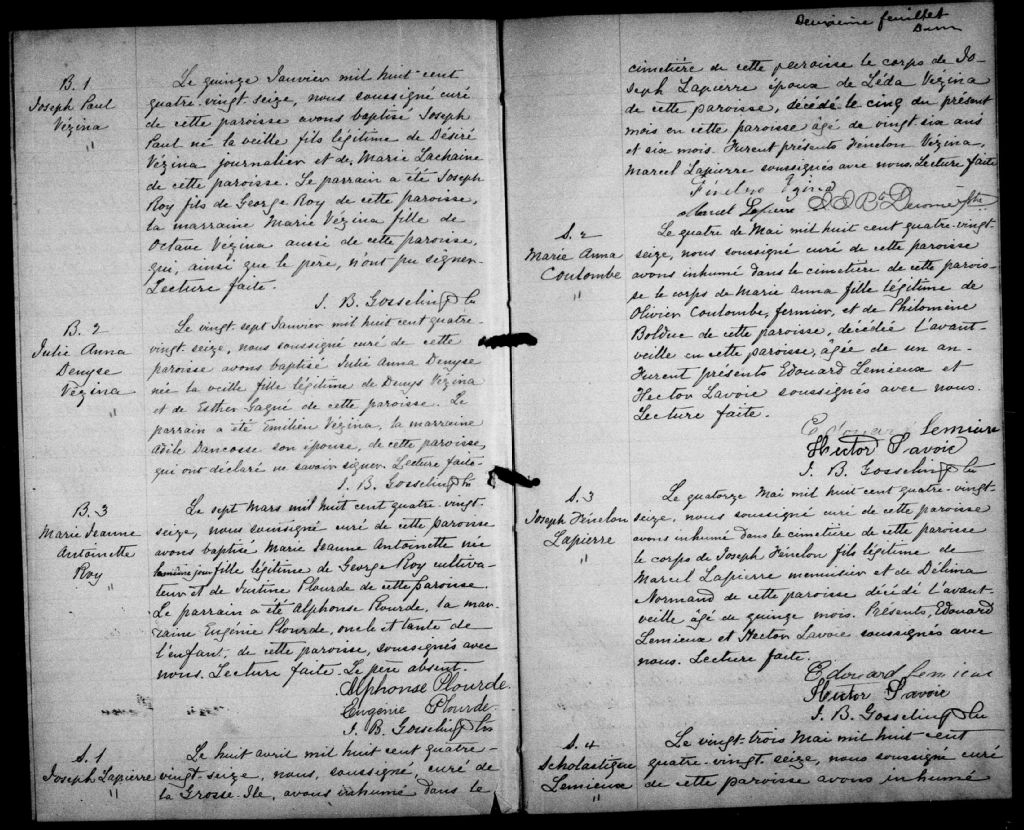 B. 1
Joseph Paul
Vézina
"
Le quinze Janvier mil huit cent
quatre-vingt seize, nous soussigné curé
de cette paroisse avons baptisé Joseph
Paul né la veille fils légitime de Désiré
Vézina journalier et de Marie Lachaine
de cette paroisse. Le parrain a été Joseph
Roy fils de George Roy de cette paroisse,
la marraine Marie Vézina fille de
Octave Vézina aussi de cette paroisse,
qui, ainsi que le père, n'ont pu signer.
Lecture faite.
J. B. Gosselin
B. 2
Julie Anna
Denyse
Vézina
"
Le vingt sept Janvier mil huit cent quatre-
vingt seize, nous soussigné curé de cette
paroisse avons baptisé Julie Anna Denyse
née la veille fille légitime de Denys Vézina
et de Esther Gagné de cette paroisse. Le
parrain a été Emilien Vézina, la marraine
Adile Dancosse son épouse, de cette paroisse,
qui ont déclaré ne savoir signer. Lecture faite-
J. B. Gosselin
B. 3
Marie Jeanne
Antoinette
Roy
"
Le sept mars mil huit cent quatre-vingt-
seize, nous soussigné curé de cette paroisse
avons baptisé Marie Jeanne Antoinette née
le même jour fille légitime de George Roy cultiva-
teur et de Justine Plourde de cette paroisse.
Le parrain a été Alphonse Plourde, la mar-
raine Eugénie Plourde, oncle et tante de
l'enfant, de cette paroisse, soussignés avec
nous. Lecture faite. Le père absent.
Alphonse Plourde.
Eugenie Plourde.
J. B. Gosselin
S. 1
Joseph Lapierre
"
Le huit avril mil huit cent quatre-
vingt seize, nous, soussigné, curé de
la Grosse-Ile, avons inhumé dans le
Deuxième feuillet
cimetière de cette paroisse le corps de Jo-
seph Lapierre époux de Léda Vézina
de cette paroisse, décédé le cinq du présent
mois en cette paroisse âgé de vingt six ans
et six mois. Furent présents Fénelon Vézina,
Marcel Lapierre soussignés avec nous. Lecture faite
Marcel Lapierre
S. 2
Marie Anna
Coulombe
"
Le quatre de Mai mil huit cent quatre-vingt-
seize, nous soussigné curé de cette paroisse
avons inhumé dans le cimetière de cette parois-
se le corps de Marie Anna fille légitime de
Olivier Coulombe, fermier, et de Philomène
Bolduc de cette paroisse, décédée l'avant-
veille en cette paroisse, âgée de un an-
Furent présents Edouard Lemieux et
Hector Lavoie soussignés avec nous.
Lecture faite.
Edouard Lemieux
Hector Lavoie
J. B. Gosselin
S. 3
Joseph Fénelon
Lapierre
"
Le quatorze Mai mil huit cent quatre-vingt-
seize, nous soussigné curé de cette paroisse
avons inhumé dans le cimetière de cette paroisse
le corps de Joseph Fénelon fils légitime de
Marcel Lapierre menuisier et de Délima
Normand de cette paroisse décédé l'avant-
veille âgé de quinze mois. Présents, Edouard
Lemieux et Hector Lavoie soussignés avec
nous. Lecture faite.
Edouard Lemieux
Hector Lavoie
J. B. Gosselin
S. 4
Scholastique
Lemieux
"
Le vingt-trois Mai mil huit cent
quatre-vingt-seize, nous soussigné curé
de cette paroisse avons inhumé